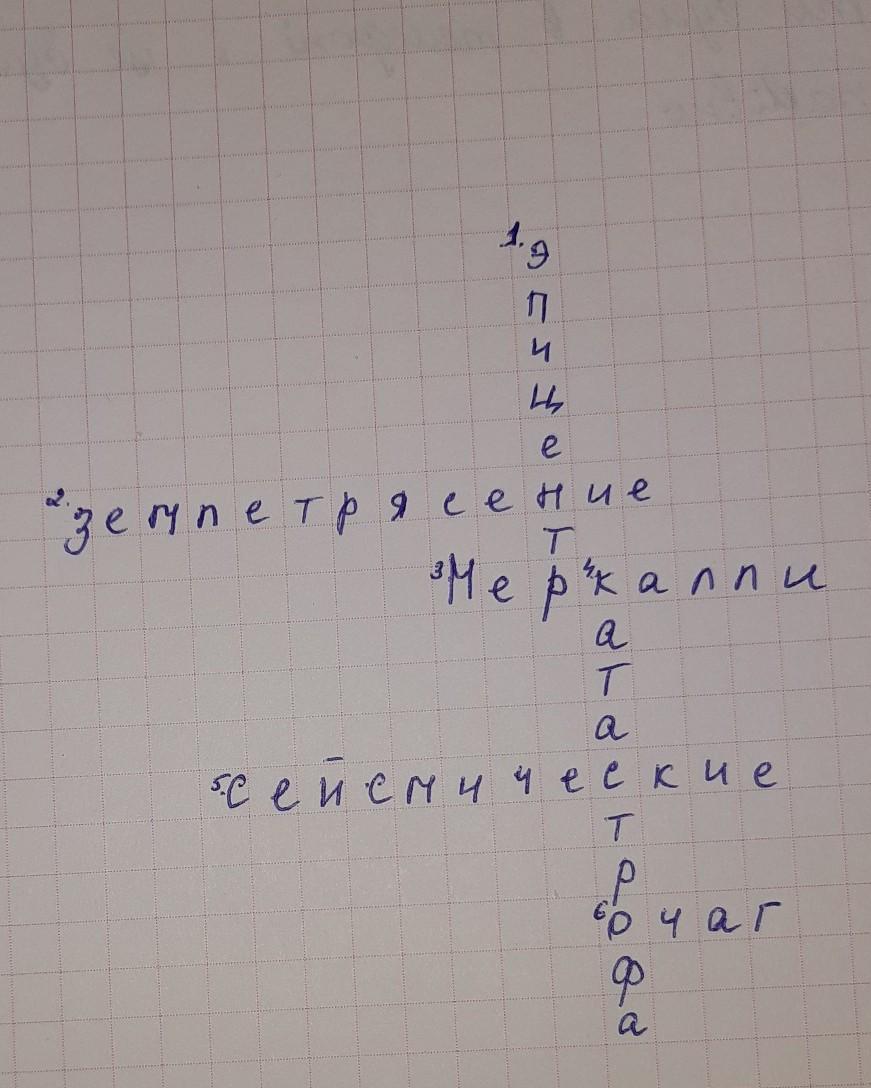 1. Эпицентр
2. Землетрясение
3 Меркалли
4 катастрофа
5. Сейсмические
6 очаг